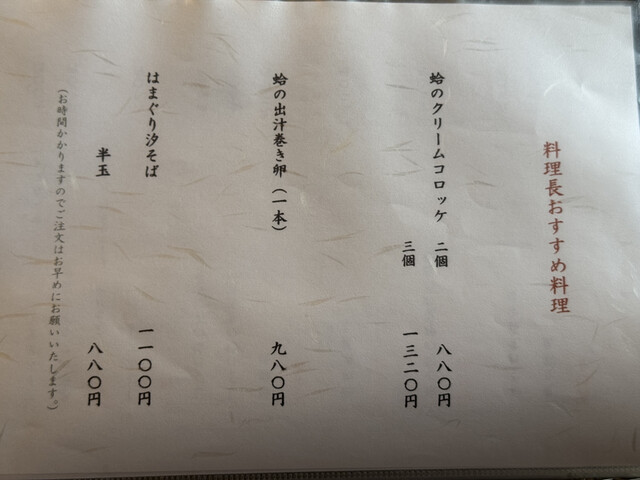 料理長おすすめ料理
蛤のクリームコロッケ 二個 八八〇円
三個 一三二〇円
蛤の出汁巻き卵（一本） 九八〇円
はまぐり汐そば 一一〇〇円
半玉 八八〇円
（お時間かかりますのでご注文はお早めにお願いいたします。）